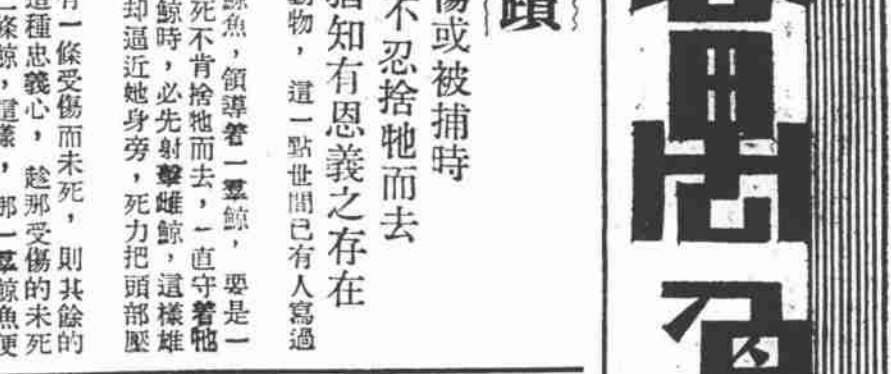 蹟
傷或被捕時
不忍捨牠而去
皆知有恩義之存在
動物，這一點世間已有人寫過
鯨魚，領導着一羣鯨，要是一
死不肯捨牠而去，一直守着牠
鯨時，必先射擊雌鯨，這樣雄
却逼近她身旁，死力把頭部壓
有一條受傷而未死，則其餘的
這種忠義心，趁那受傷的未死
一條鯨，這樣，那一羣鯨魚便